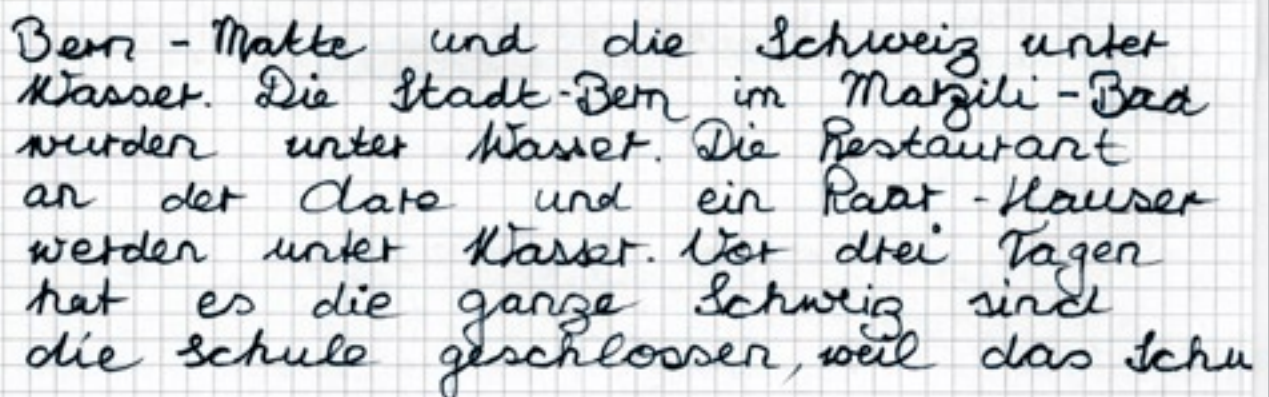 Bern - Matte und die Schweiz unter
Wasser. Die Stadt-Bern im Marzili - Bad
wurden unter Wasser. Die Restaurant
an der Aare und ein Paar - Hauser
werden unter Wasser. Vor drei Tagen
hat es die ganze Schweiz sind
die Schule geschlossen, weil das Schu